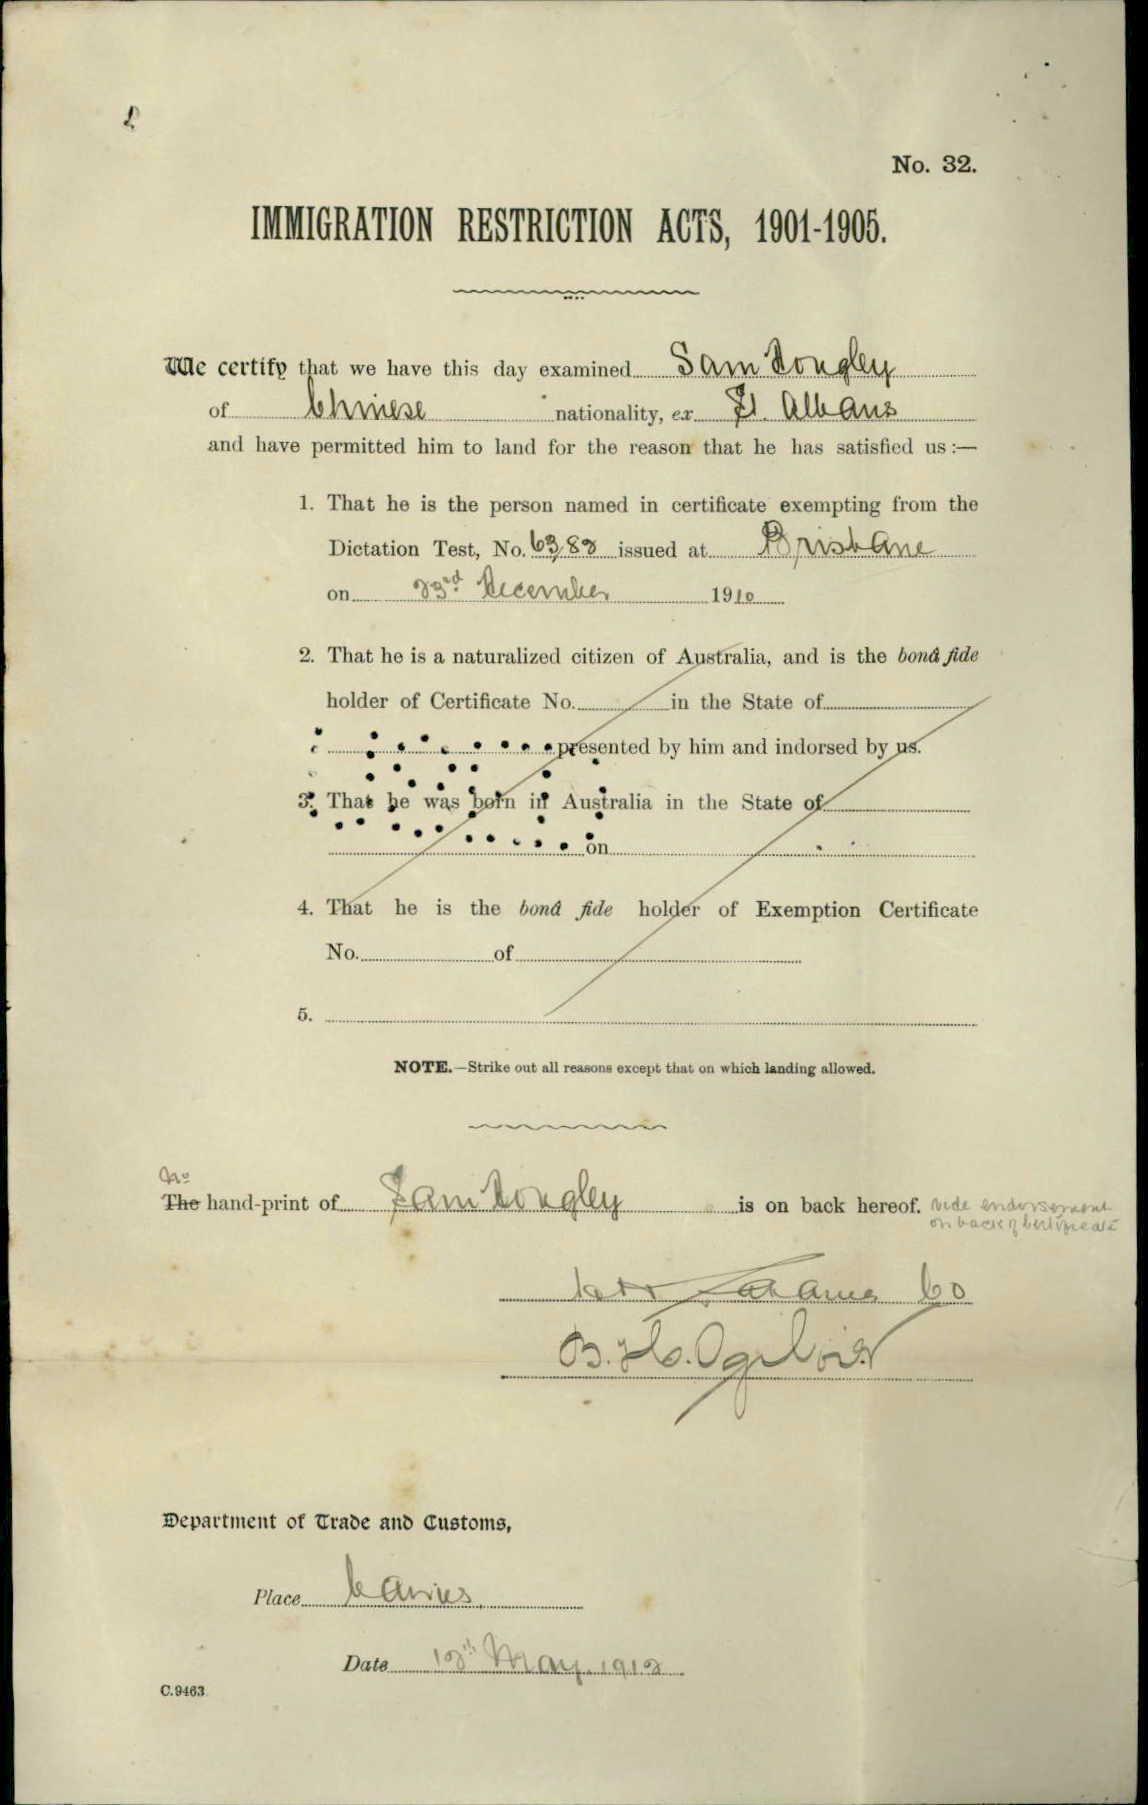 No. 32.
IMMIGRATION RESTRICTION ACTS, 1901-1905.
We certify that we have this day examined Sam Kongley
of Chinese nationality, ex St. Albans
and have permitted him to land for the reason that he has satisfied us :—
1. That he is the person named in certificate exempting from the
Dictation Test, No. issued at Brisbane
on 23rd December 1910
2. That he is a naturalized citizen of Australia, and is the bonâ fide
holder of Certificate No. in the State of
presented by him and indorsed by us.
3. That he was born in Australia in the State of
on
4. That he is the bonâ fide holder of Exemption Certificate
No. of
5.
NOTE.—Strike out all reasons except that on which landing allowed.
No
The hand-print of Sam Kongley is on back hereof. vide endorsement
on back of Certificate
B. H. Ogilvie
Department of Trade and Customs,
Place Cairns.
Date 12th May. 1912
C.9463